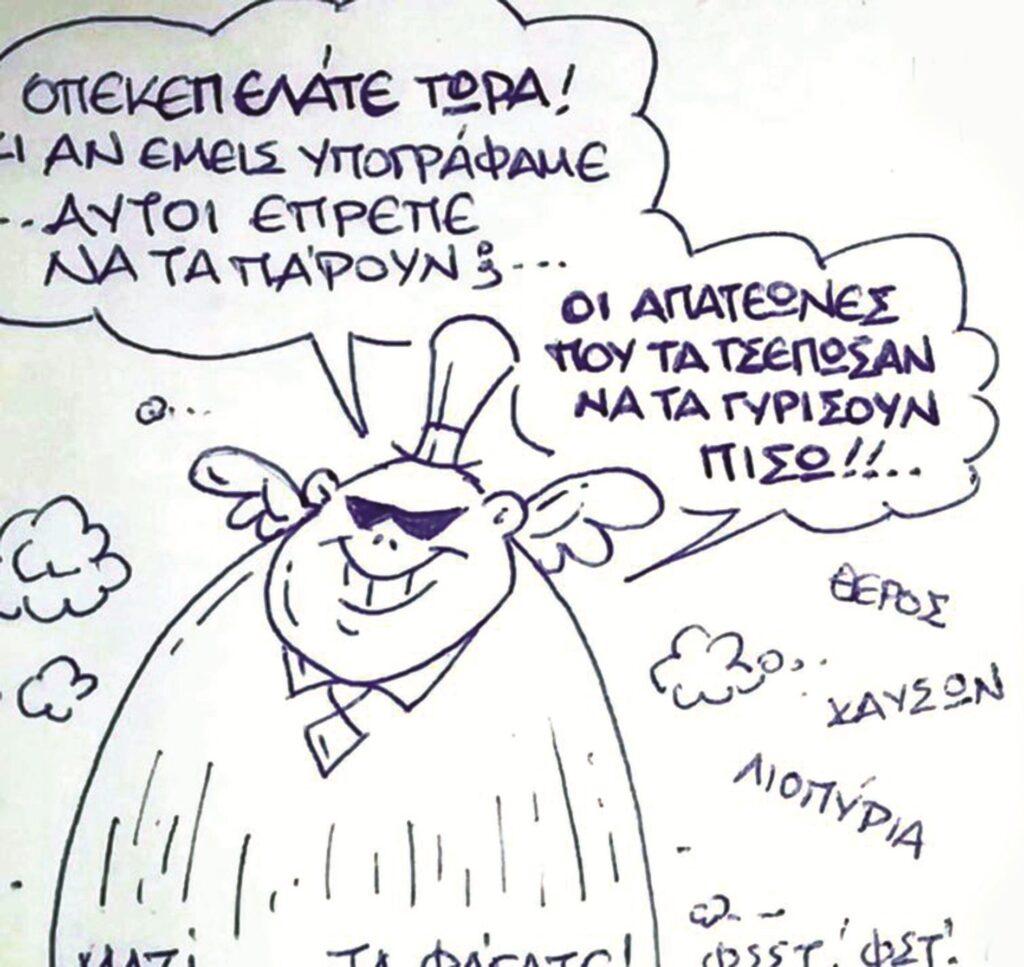 ΟΠΕΚΕΠΕΛΑΤΕ ΤΩΡΑ!
ΑΝ ΕΜΕΙΣ ΥΠΟΓΡΑΦΑΜΕ
..ΑΥΤΟΙ ΕΠΡΕΠΕ
ΝΑ ΤΑ ΠΑΡΟΥΝ ;...
ΟΙ ΑΠΑΤΕΩΝΕΣ
ΠΟΥ ΤΑ ΤΣΕΠΩΣΑΝ
ΝΑ ΤΑ ΓΥΡΙΣΟΥΝ
ΠΙΣΩ!!...
ΘΕΡΟΣ
ΧΑΥΣΩΝ
ΛΙΟΠΥΡΙΑ
ΤΑ ΦΑΓΑΤΕ!
ΦΣΣΤ! ΦΣΤ!